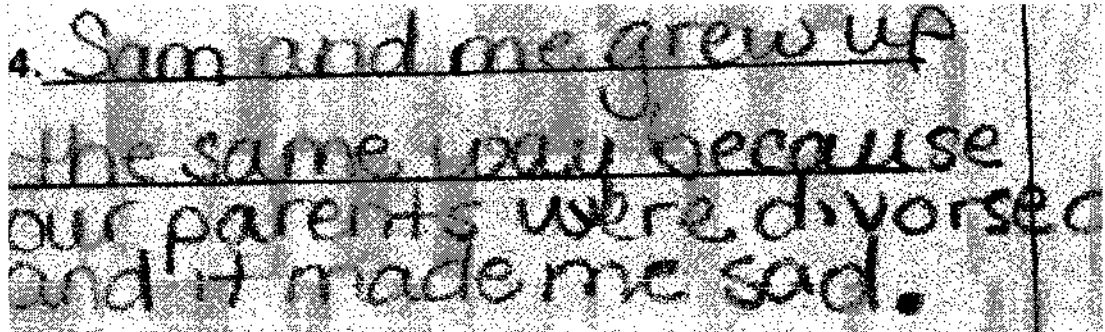 4. Sam and me grew up
the same way because
our parents were divorsed
and it made me sad.